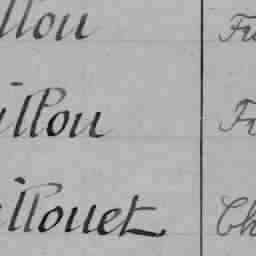 llou Fr
illou Fr
illouet Ch